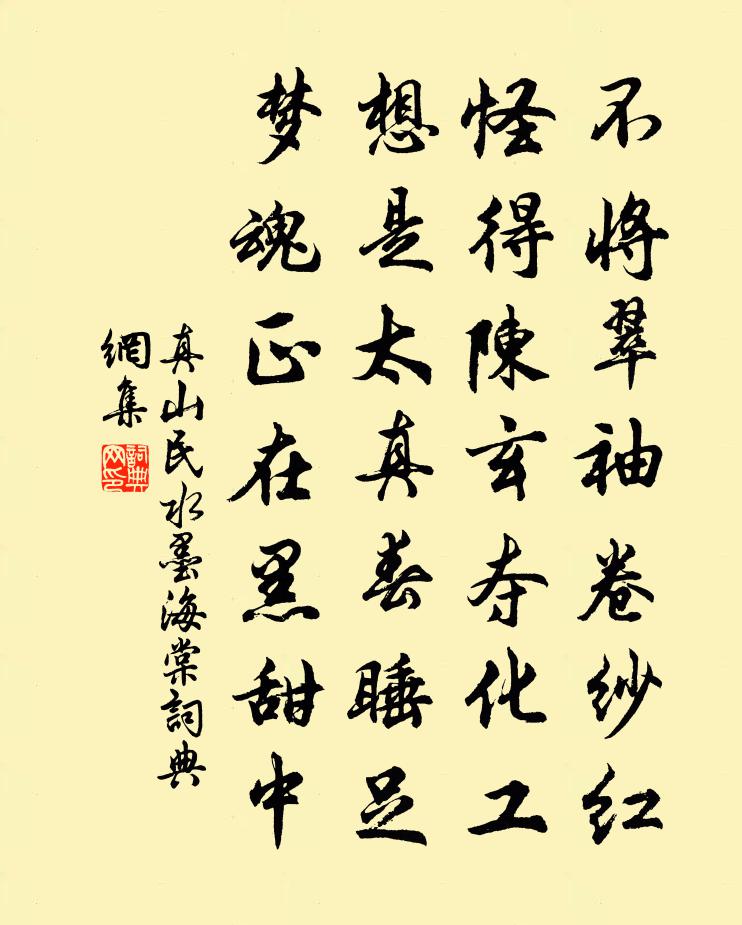 不将翠袖卷纱红
怪得陳玄夺化工
想是太真春睡足
梦魂正在黑甜中
真山民水墨海棠詞典
網集
詞典
网印